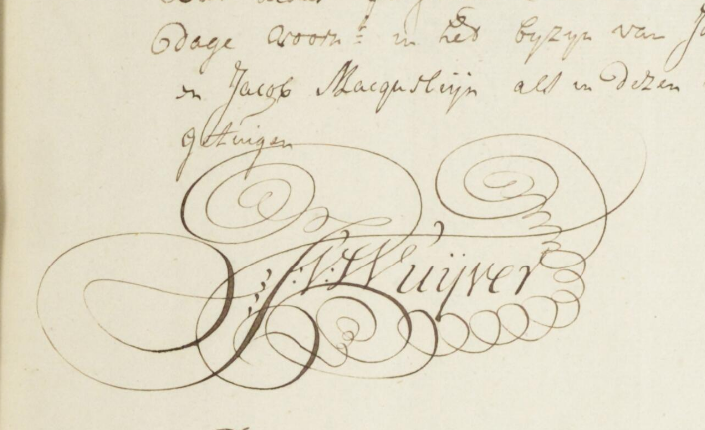 dage voorn: in het byzyn van
en Jacob Macquelijn als in dezen
getuigen
J: V: Wuijver